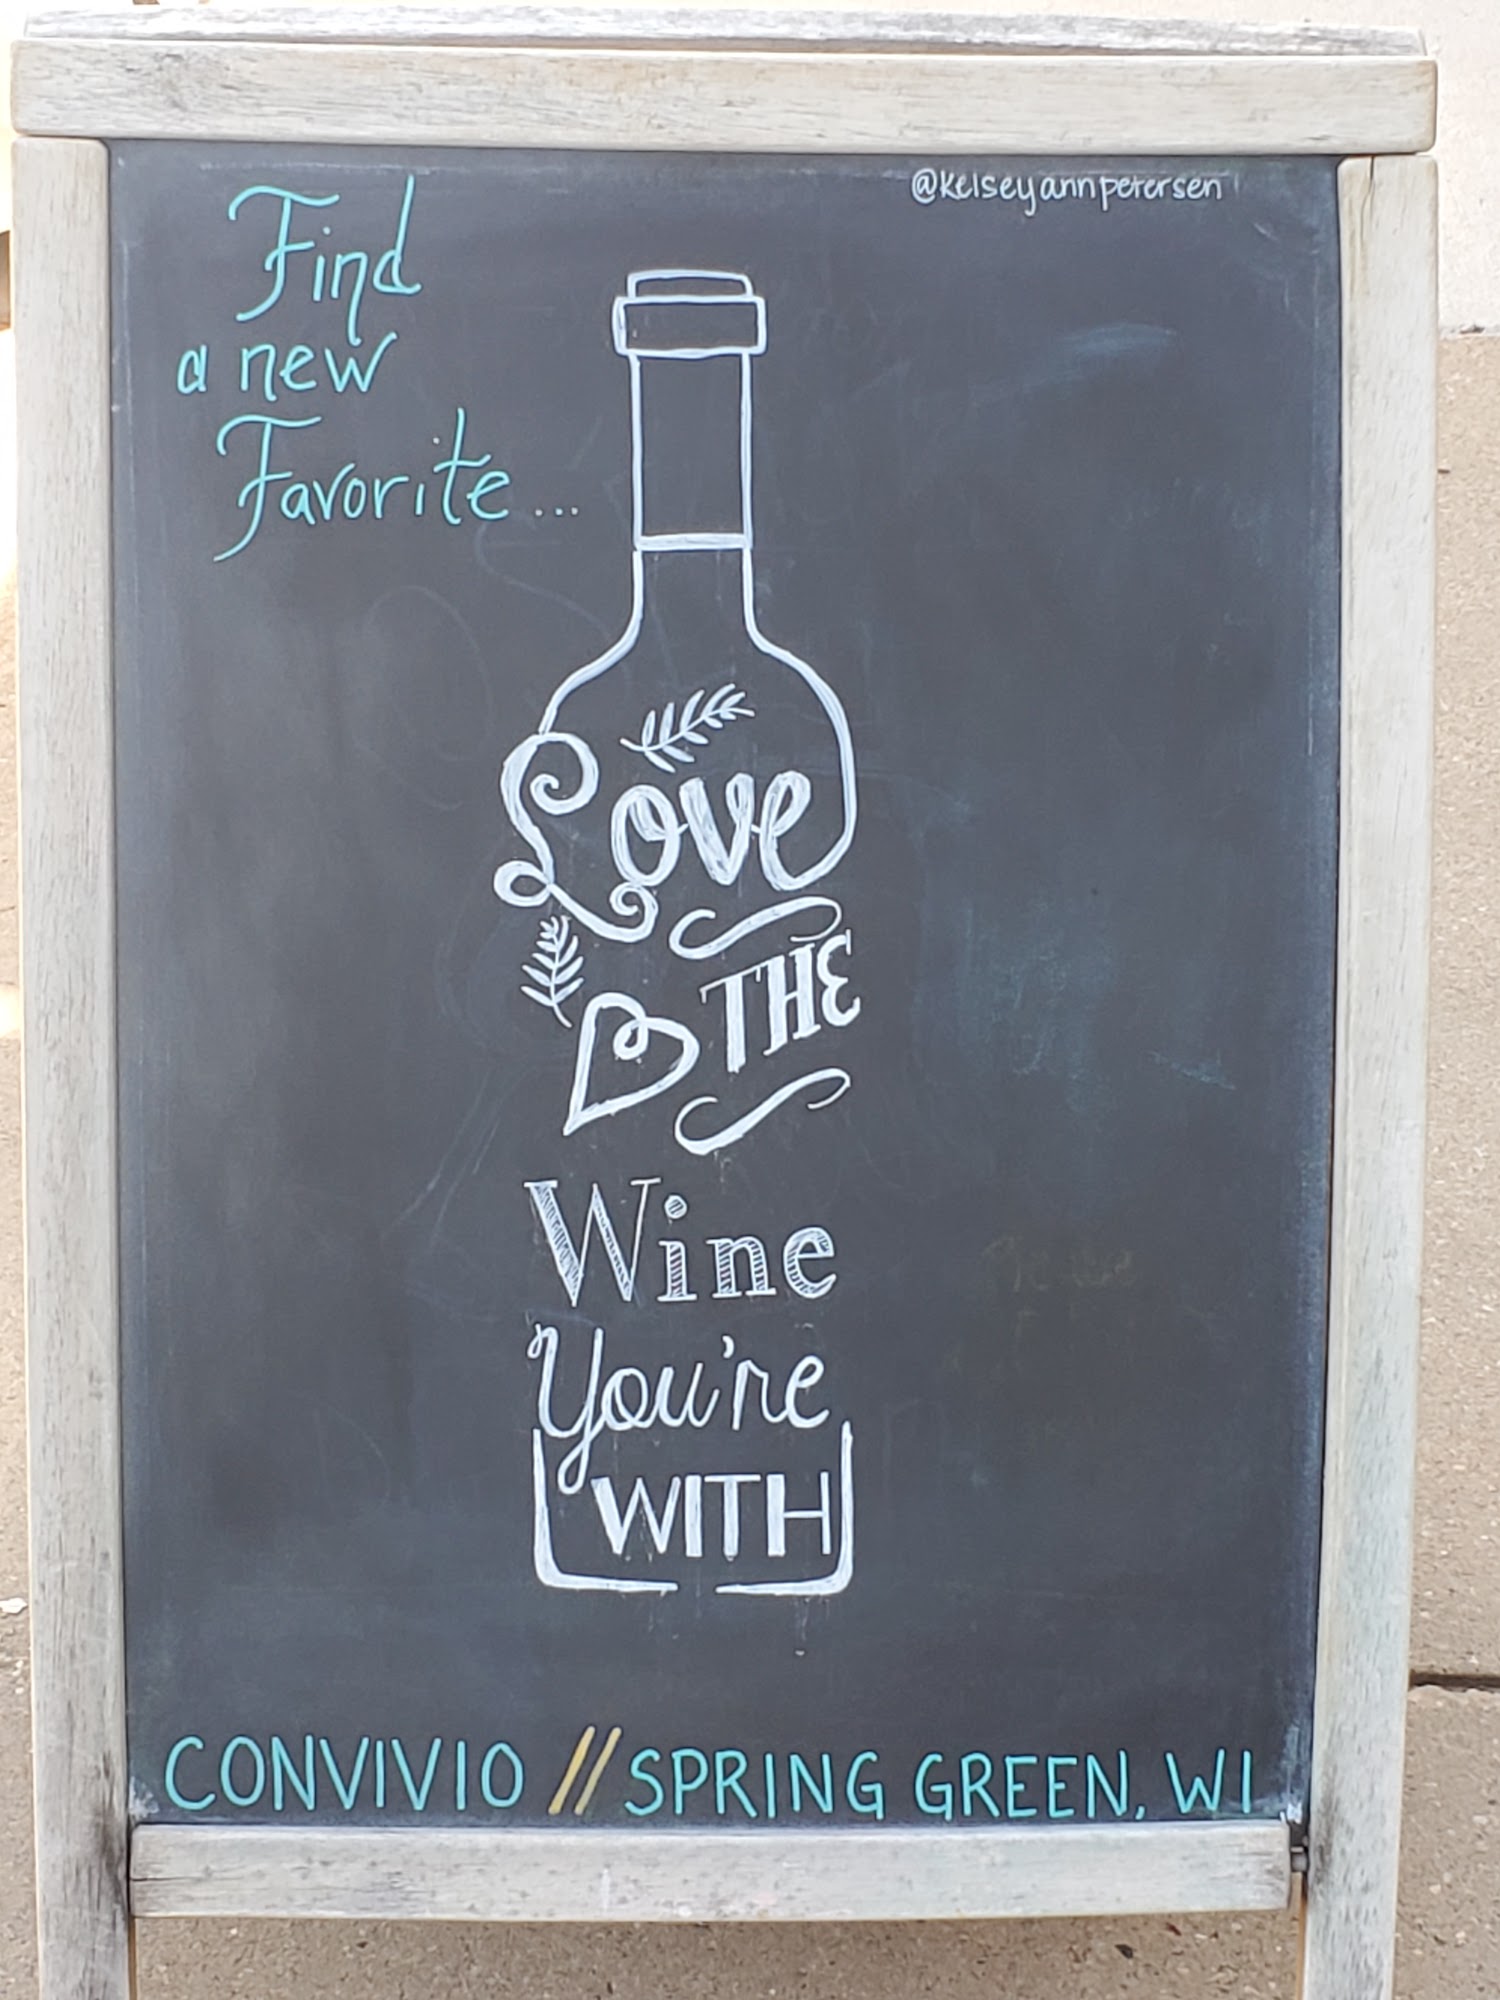 Find
a new
Favorite...
@kelseyannpetersen
Love
THE
Wine
You're
WITH
CONVIVIO // SPRING GREEN, WI